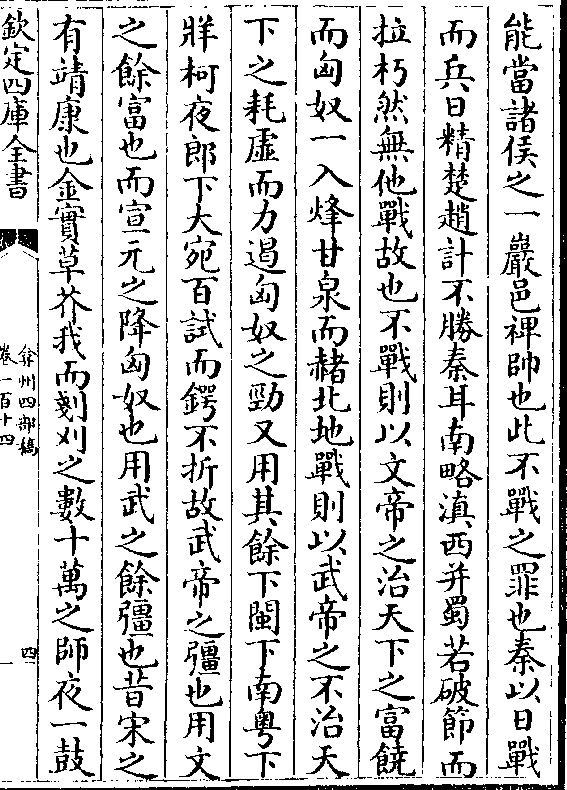 能當諸侯之一巖邑裨帥也此不戰之罪也秦以日戰
而兵日精楚趙計不勝秦耳南略滇西并蜀若破節而
拉朽然無他戰故也不戰則以文帝之治天下之富饒
而匈奴一入烽甘泉而赭北地戰則以武帝之不治天
下之耗虛而力遏匈奴之勁又用其餘下閩下南粤下
牂柯夜郎下大宛百試而鍔不折故武帝之彊也用文
之餘富也而宣元之降匈奴也用武之餘彊也昔宋之
有靖康也金實草芥我而剗刈之數十萬之師夜一鼓
欽定四庫全書
弇州四部稿
卷一百十四
四